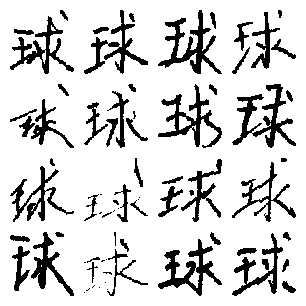 球球球球
球球球球
球球球球
球球球球